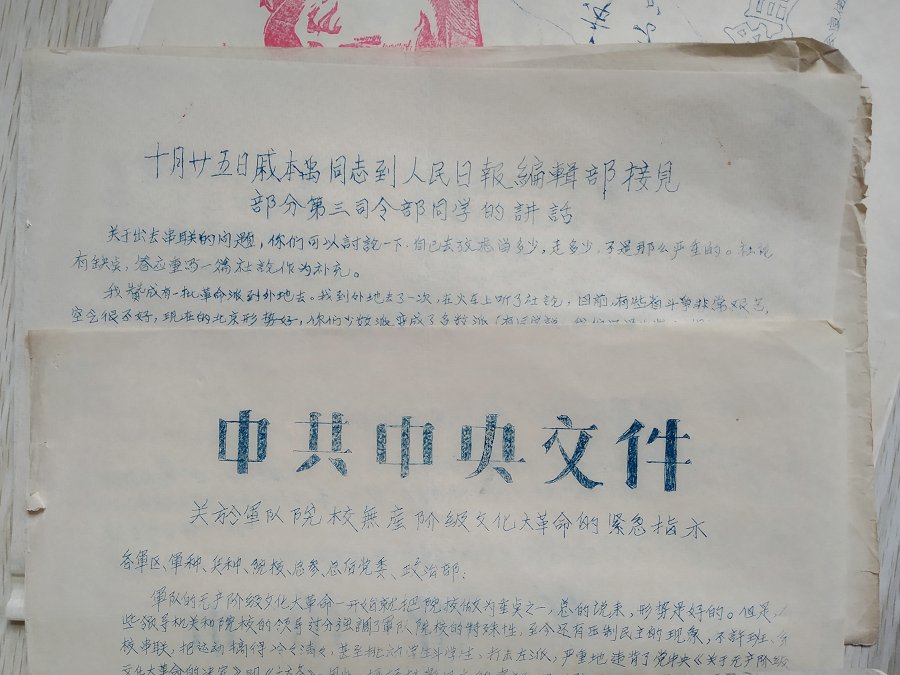 十月廿五日戚本禹同志到人民日報編輯部接見
部分第三司令部同学的講話
关于出去串联的问题，你们可以討論一下，自己去考慮留多少，走多少，不是那么严重的。社論
有缺点，應再写一篇社論作为补充。
我赞成有一批革命派到外地去。我到外地去了一次，在火车上听了社論，目前，有些省斗爭非常艰苦，
空气很不好，現在的北京形势好，你们少数派变成了多数派
中共中央文件
关於軍队院校無産阶级文化大革命的緊急指示
各軍区、軍种、兵种、院校、总参、总后党委、政治部：
軍队的无产阶级文化大革命一开始就把院校做为重点之一，总的说来，形势是好的。但是，
些领导机关和院校的领导过分强調了軍队院校的特殊性，至今还有压制民主的现象，不許班、
校串联，把运动搞得冷冷清清，甚至挑动学生斗学生，打击左派，严重地违背了党中央《关于无产阶级
文化大革命的决定》